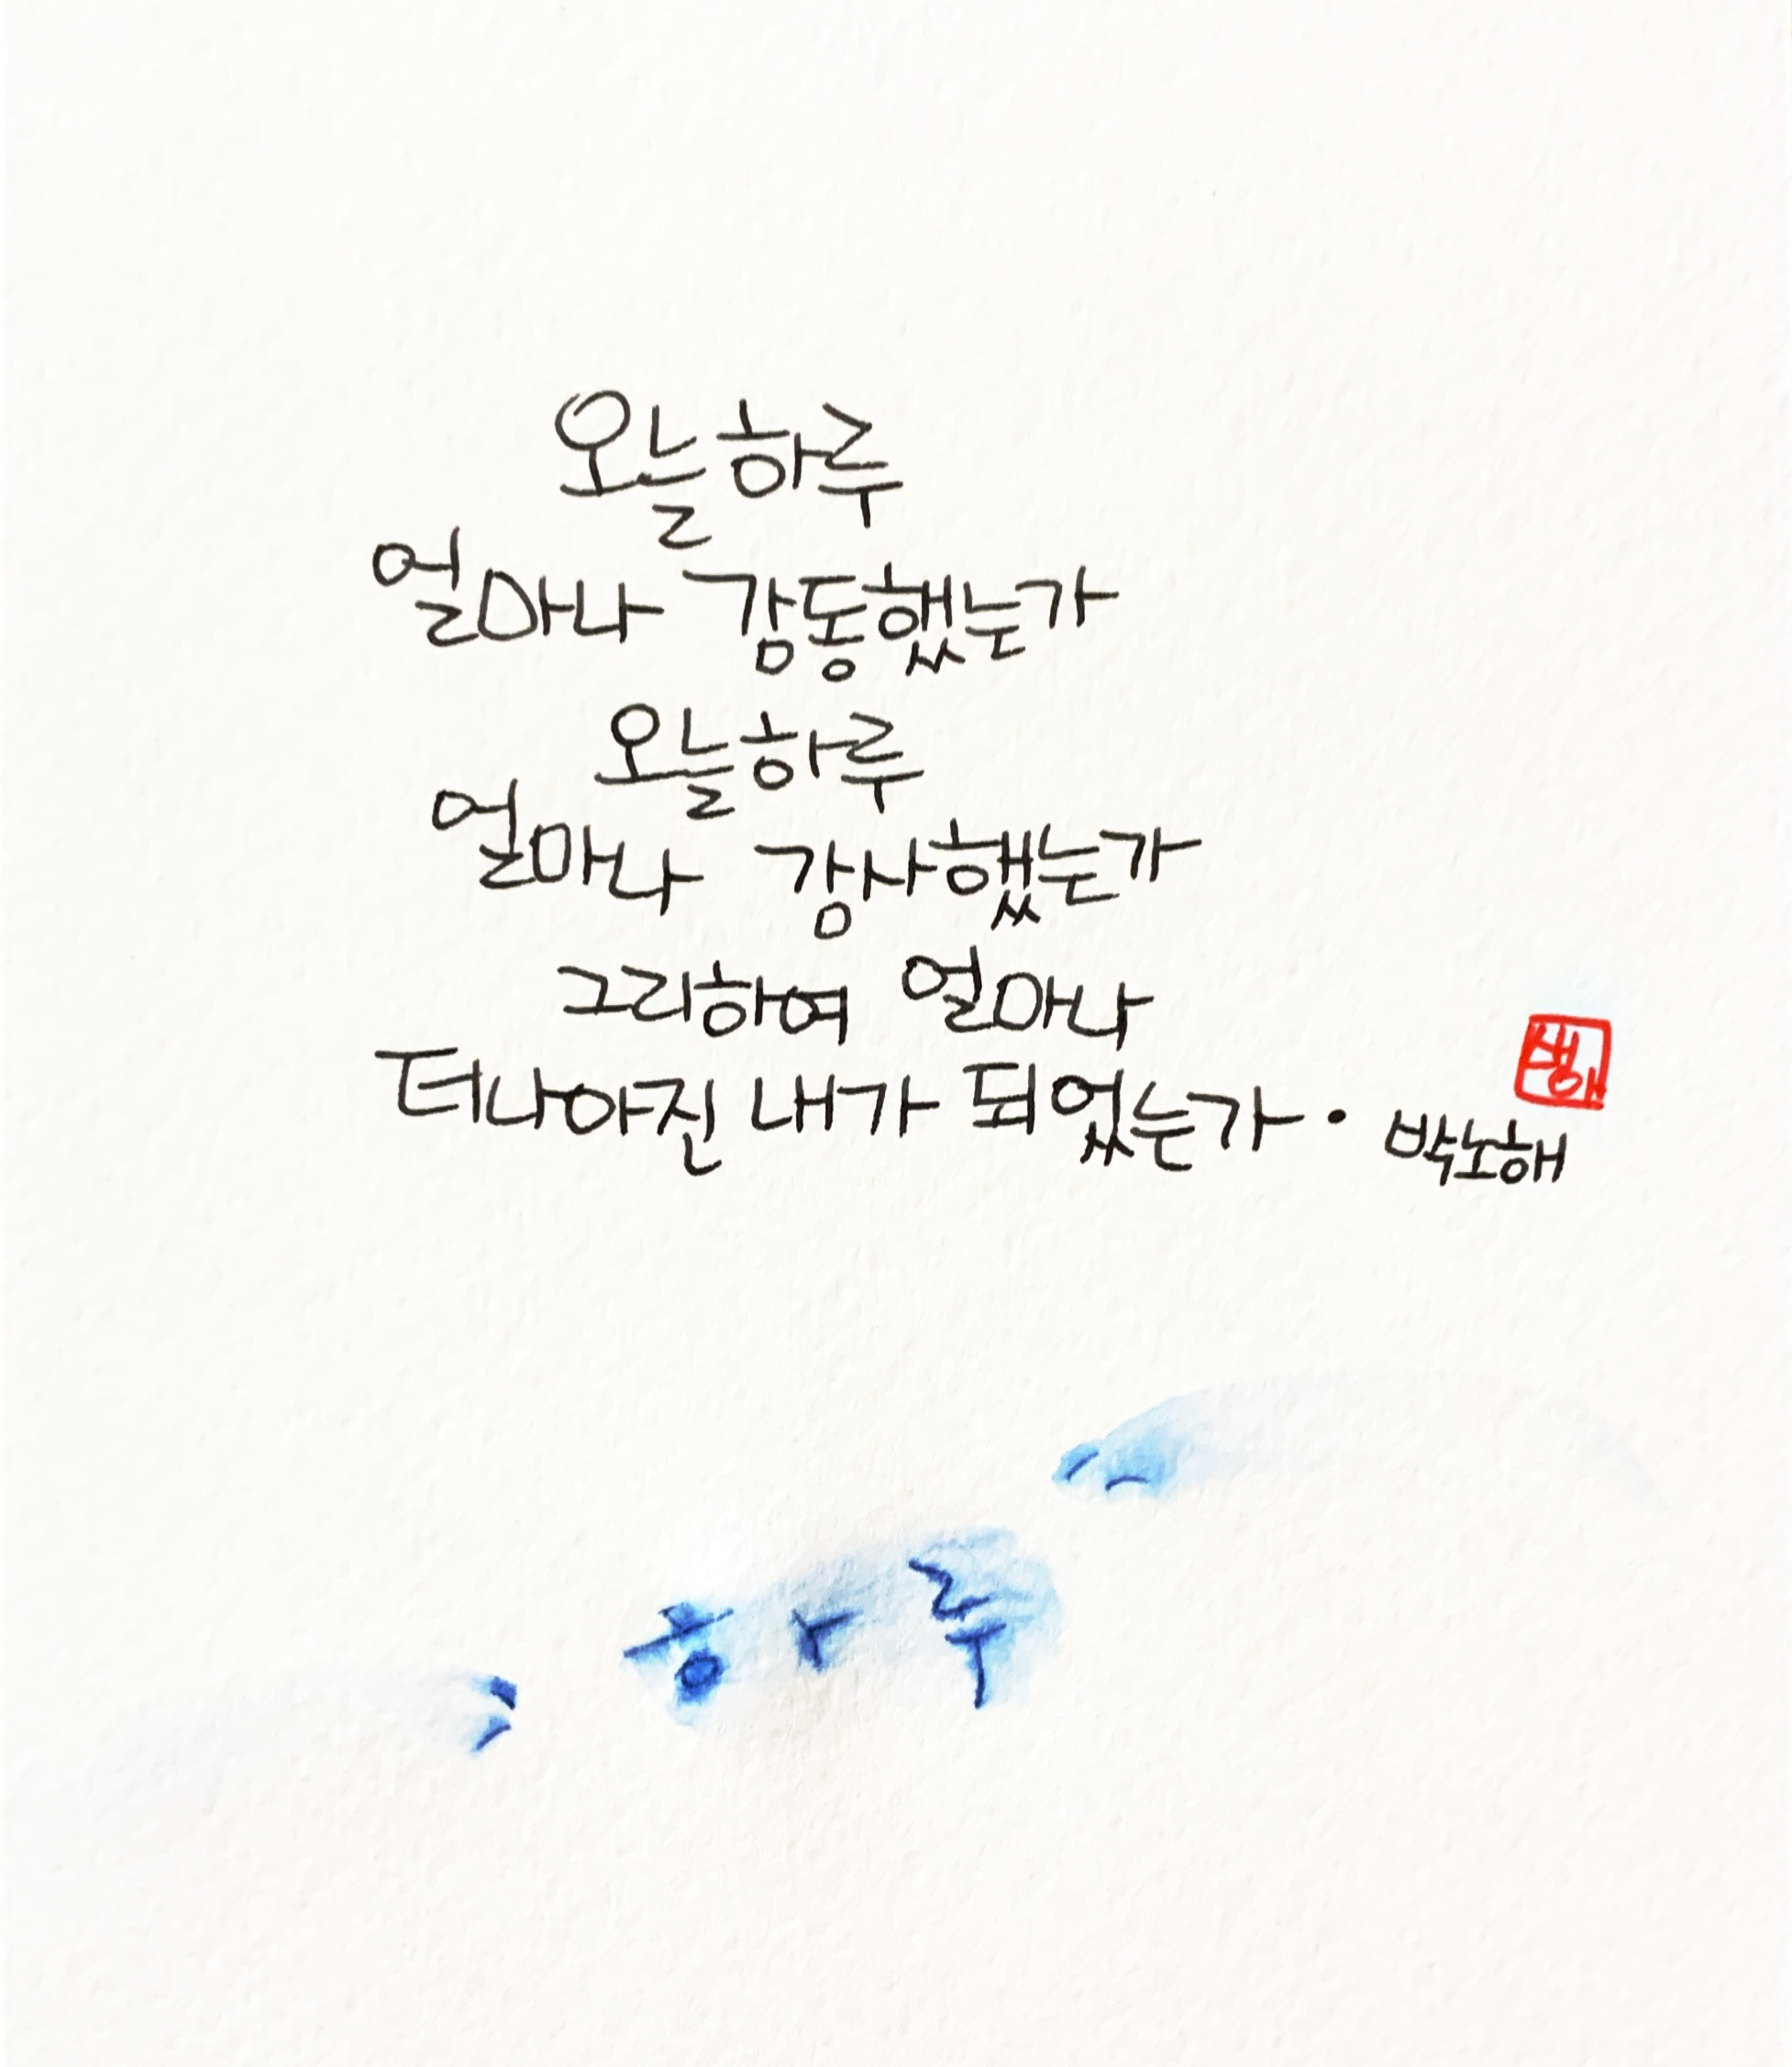 오늘 하루
얼마나 감동했는가
오늘 하루
얼마나 감사했는가
그리하여 얼마나
더나아진 내가 되었는가 · 박노해
하루